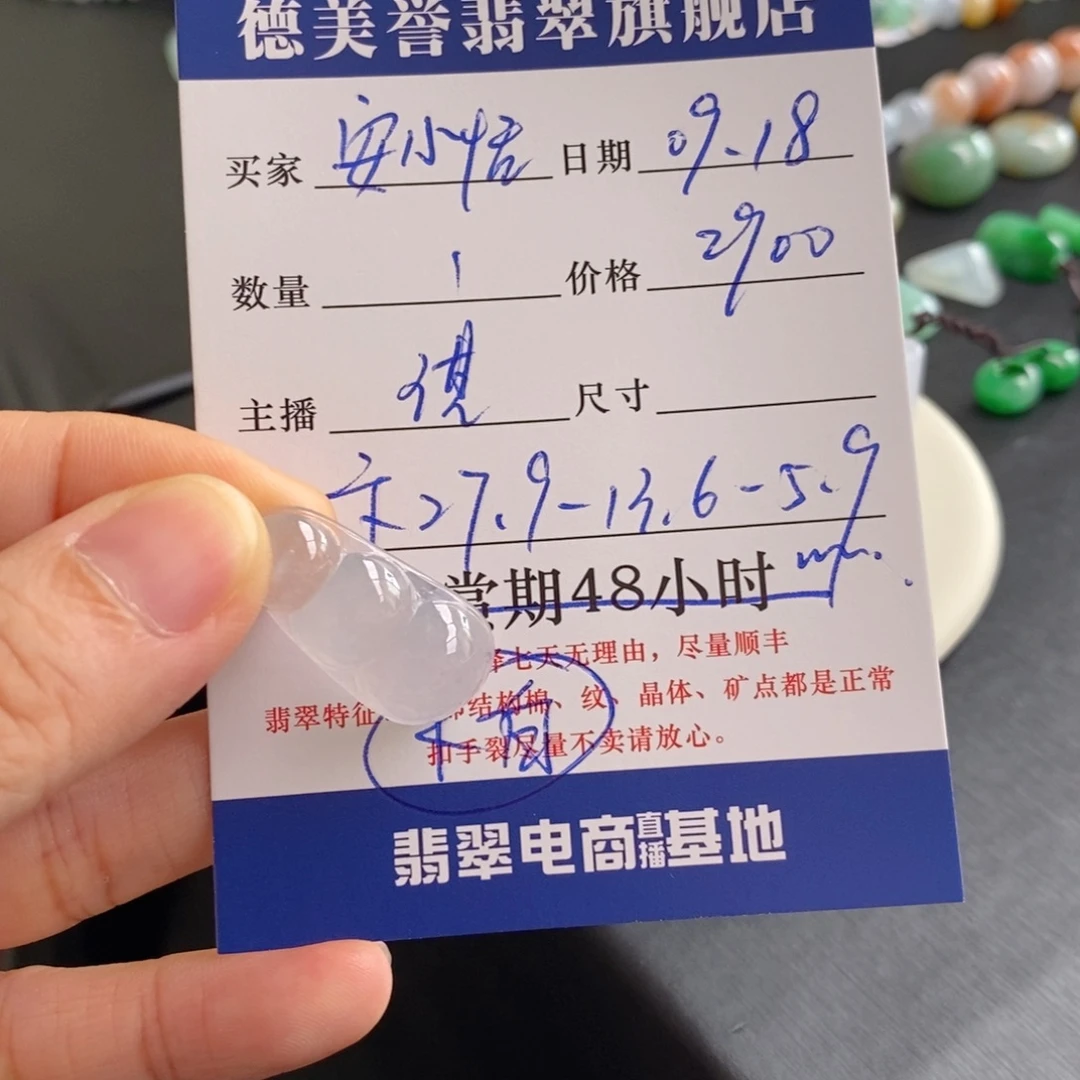 德美誉翡翠旗舰店
买家 安小恬 日期 09.18
数量 1 价格 2900
主播 尺寸
27.9-13.6-5.9
mm.
赏期48小时
七天无理由，尽量顺丰
翡翠特征 结构棉、纹、晶体、矿点都是正常
扣手裂尽量不卖请放心。
翡翠电商直播基地